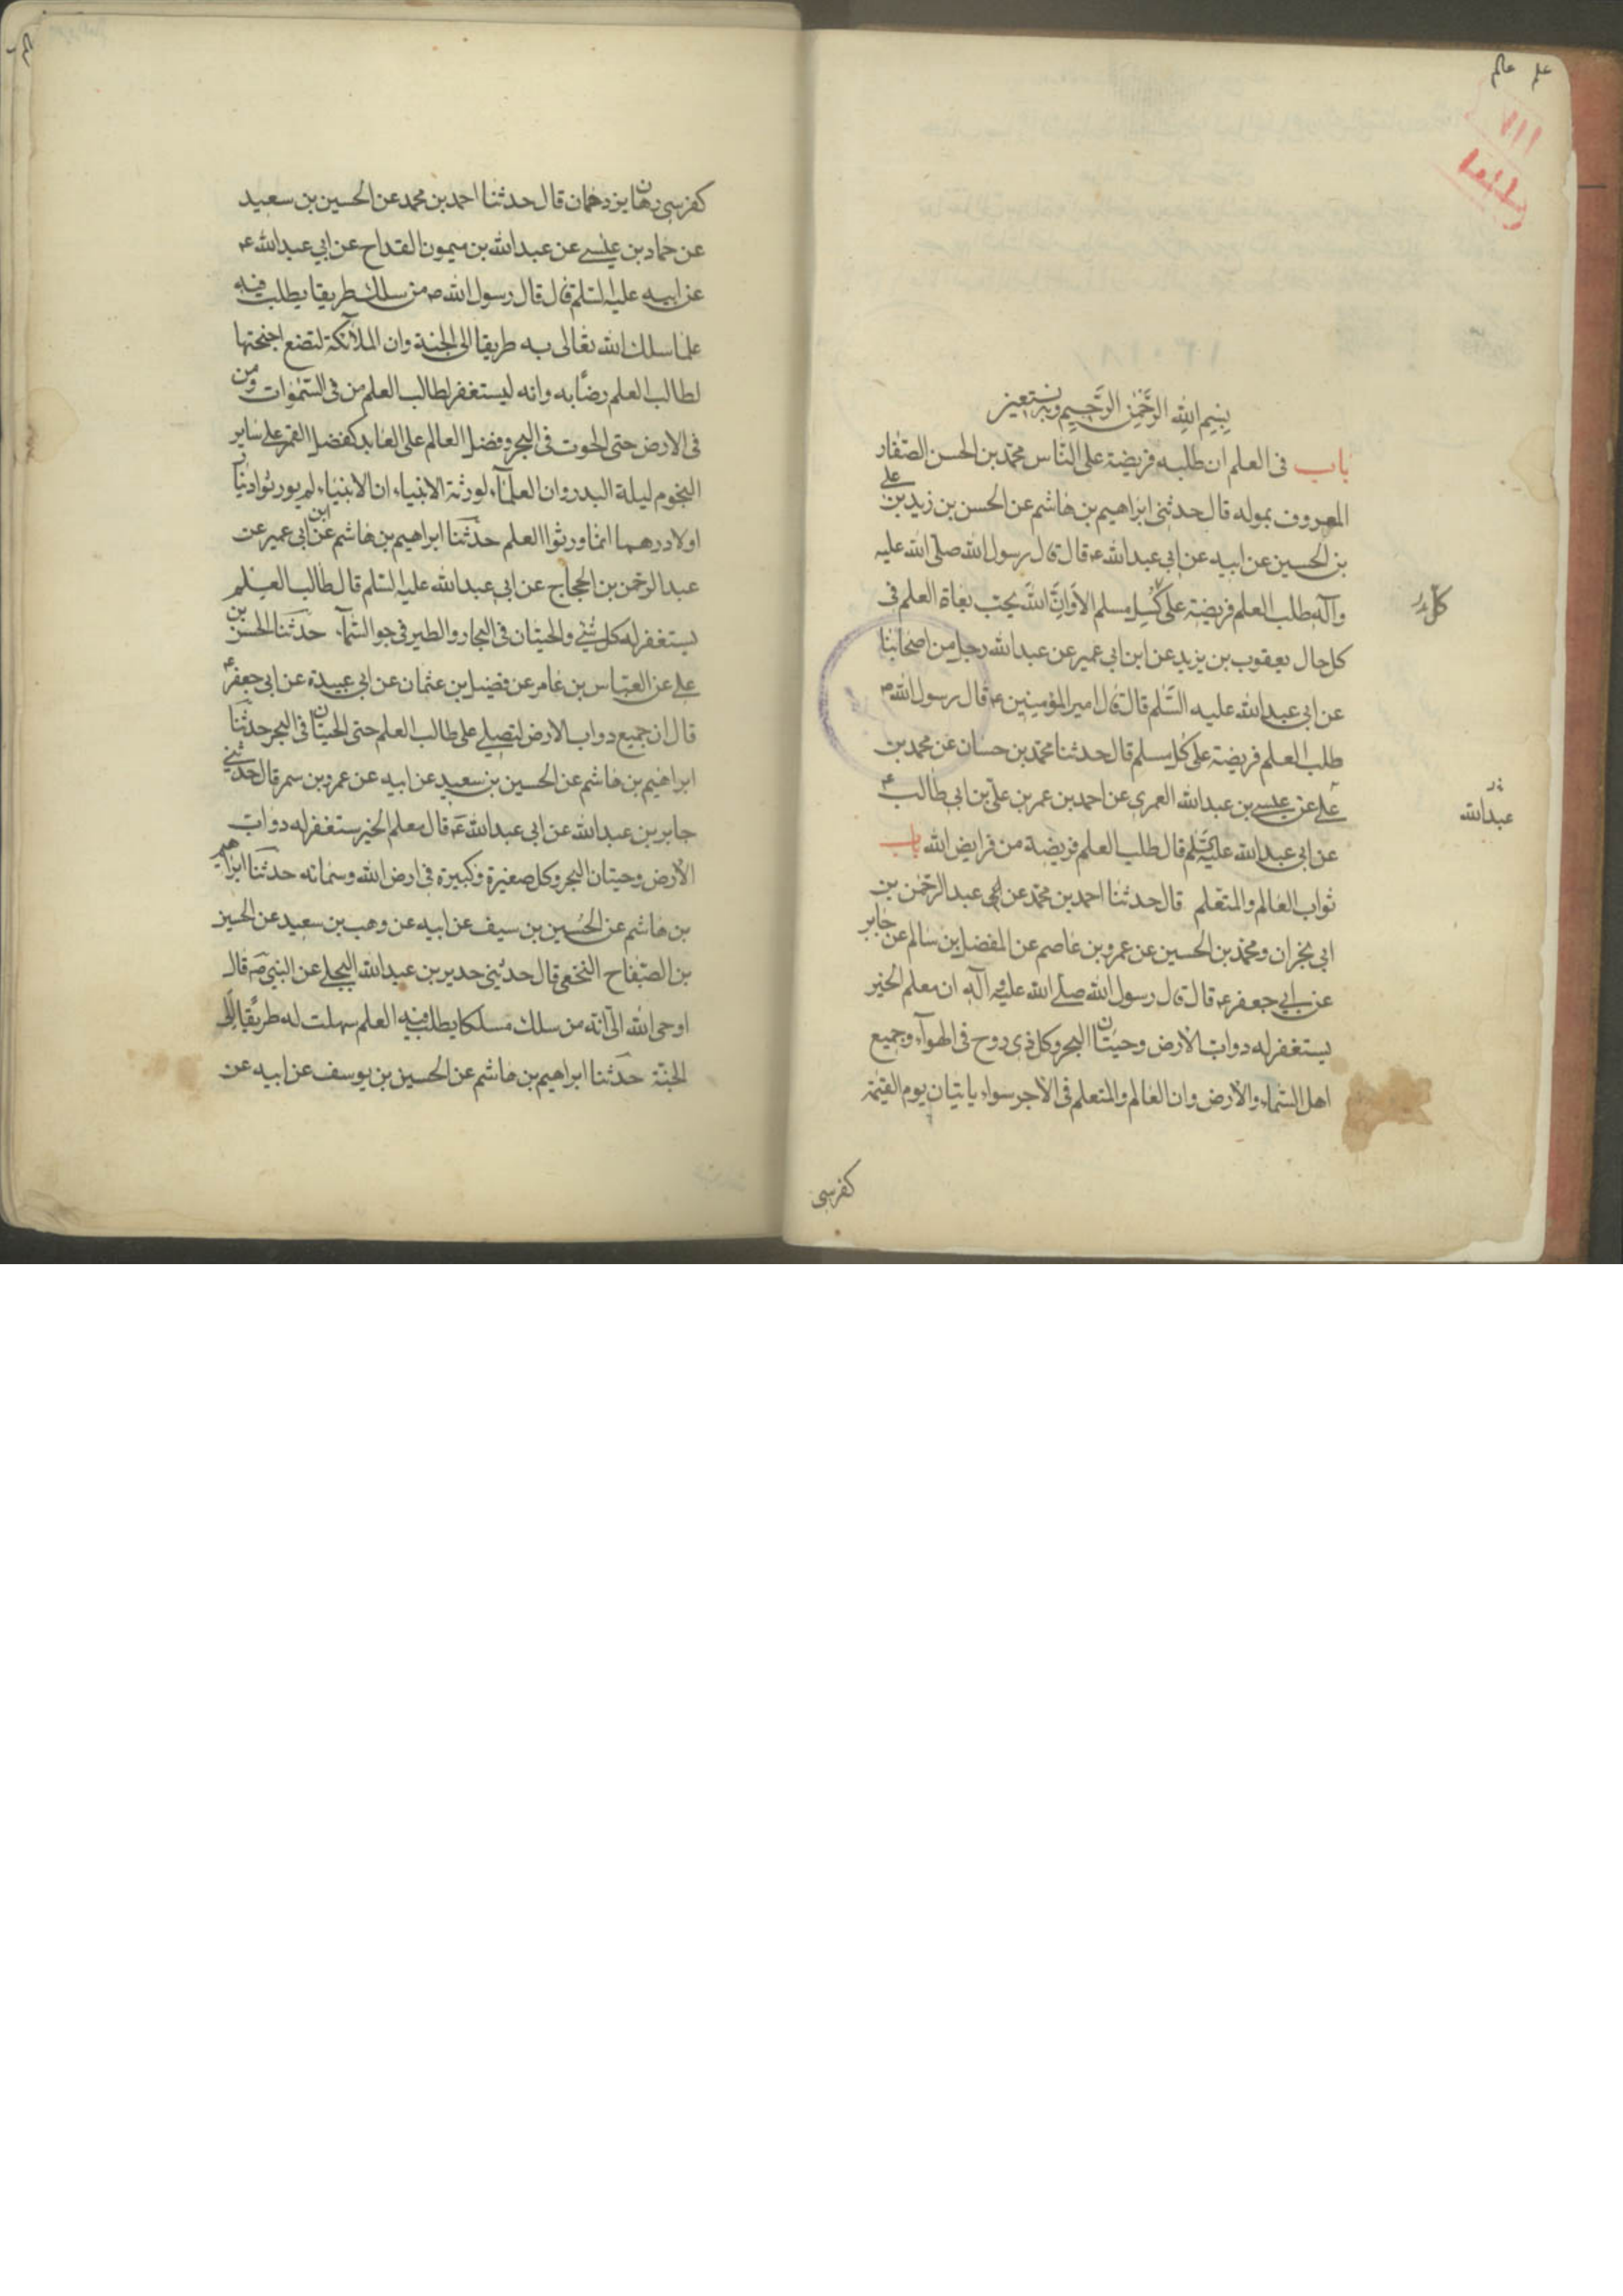 علم عالم
بسم الله الرَّحمٰن الرَّحيم وبه نستعين
باب في العلم ان طلبه فريضة على النّاس محمّد بن الحسن الصّفار
المعروف بمموله قال حدثنى ابراهيم بن هاشم عن الحسن بن زيد بن علي
بن الحسين عن ابيه عن ابي عبدالله ع قال قال رسول الله صلّى الله عليه
وآله طلب العلم فريضة على كلّ مسلم الا وانّ الله يحبّ بغاة العلم في
كل حال يعقوب بن يزيد عن ابن ابي عمير عن عبدالله رجل من اصحابنا
عن ابي عبدالله عليه السَّلم قال قال امير المؤمنين ع قال رسول الله ص
طلب العلم فريضة على كل مسلم قال حدثنا محمّد بن حسّان عن محمد بن
علي عن عيسى بن عبدالله العمرى عن احمد بن عمر بن علي بن ابي طالب ع
عن ابي عبدالله عليه السّلم قال طلب العلم فريضة من فرايض الله باب
ثواب العالم والمتعلم قال حدثنا احمد بن محمّد عن عبد الرحمٰن بن
ابي نجران ومحمّد بن الحسين عن عمرو بن عاصم عن المفضل بن سالم عن جابر
عن ابي جعفر ع قال قال رسول الله صلّى الله عليه وآله ان معلم الخير
يستغفر له دوابّ الارض وحيتان البحر وكل ذي روح في الهوآء وجميع
اهل السّماء والارض وان العالم والمتعلم في الاجر سواء ياتيان يوم القيمة
كفرسى
كلّ
عبدالله
كفرسى رهان يزدحمان قال حدثنا احمد بن محمد عن الحسين بن سعيد
عن حماد بن عيسى عن عبدالله بن ميمون القداح عن ابي عبدالله ع
عن ابيه عليه السّلم قال قال رسول الله ص من سلك طريقا يطلب فيه
علما سلك الله تعالى به طريقا الى الجنة وان الملآئكة لتضع اجنحتها
لطالب العلم رضًا به وانه ليستغفر لطالب العلم من في السّمٰوات ومن
في الارض حتى الحوت في البحر وفضل العالم على العابد كفضل القمر على ساير
النجوم ليلة البدر وان العلمآء لورثة الانبياء ان الانبياء لم يورثوا دينارًا
ولا درهما انما ورثوا العلم حدّثنا ابراهيم بن هاشم عن ابن ابي عمير عن
عبد الرحمٰن بن الحجاج عن ابي عبدالله عليه السّلم قال طالب العلم
يستغفر له كل شيء والحيتان في البحار والطير في جو السّمآء حدّثنا الحسن بن
علي عن العبّاس بن عامر عن فضيل بن عثمان عن ابي عبيدة عن ابي جعفر ع
قال ان جميع دواب الارض لتصلي على طالب العلم حتى الحيتان في البحر حدّثنا
ابراهيم بن هاشم عن الحسين بن سعيد عن ابيه عن عمرو بن سمر قال حدّثني
جابر بن عبدالله عن ابي عبدالله ع قال معلم الخير يستغفر له دوابّ
الارض وحيتان البحر وكل صغيرة وكبيرة في ارض الله وسمائه حدّثنا ابراهيم
بن هاشم عن الحسين بن سيف عن ابيه عن وهب بن سعيد عن الحسين
بن الصّفاح النخعي قال حدثنى حدير بن عبدالله البجلي عن النبيّ ص قال
اوحى الله الىّ انّه من سلك مسلكا يطلب فيه العلم سهلت له طريقًا الى
الجنّة حدّثنا ابراهيم بن هاشم عن الحسين بن يوسف عن ابيه عن